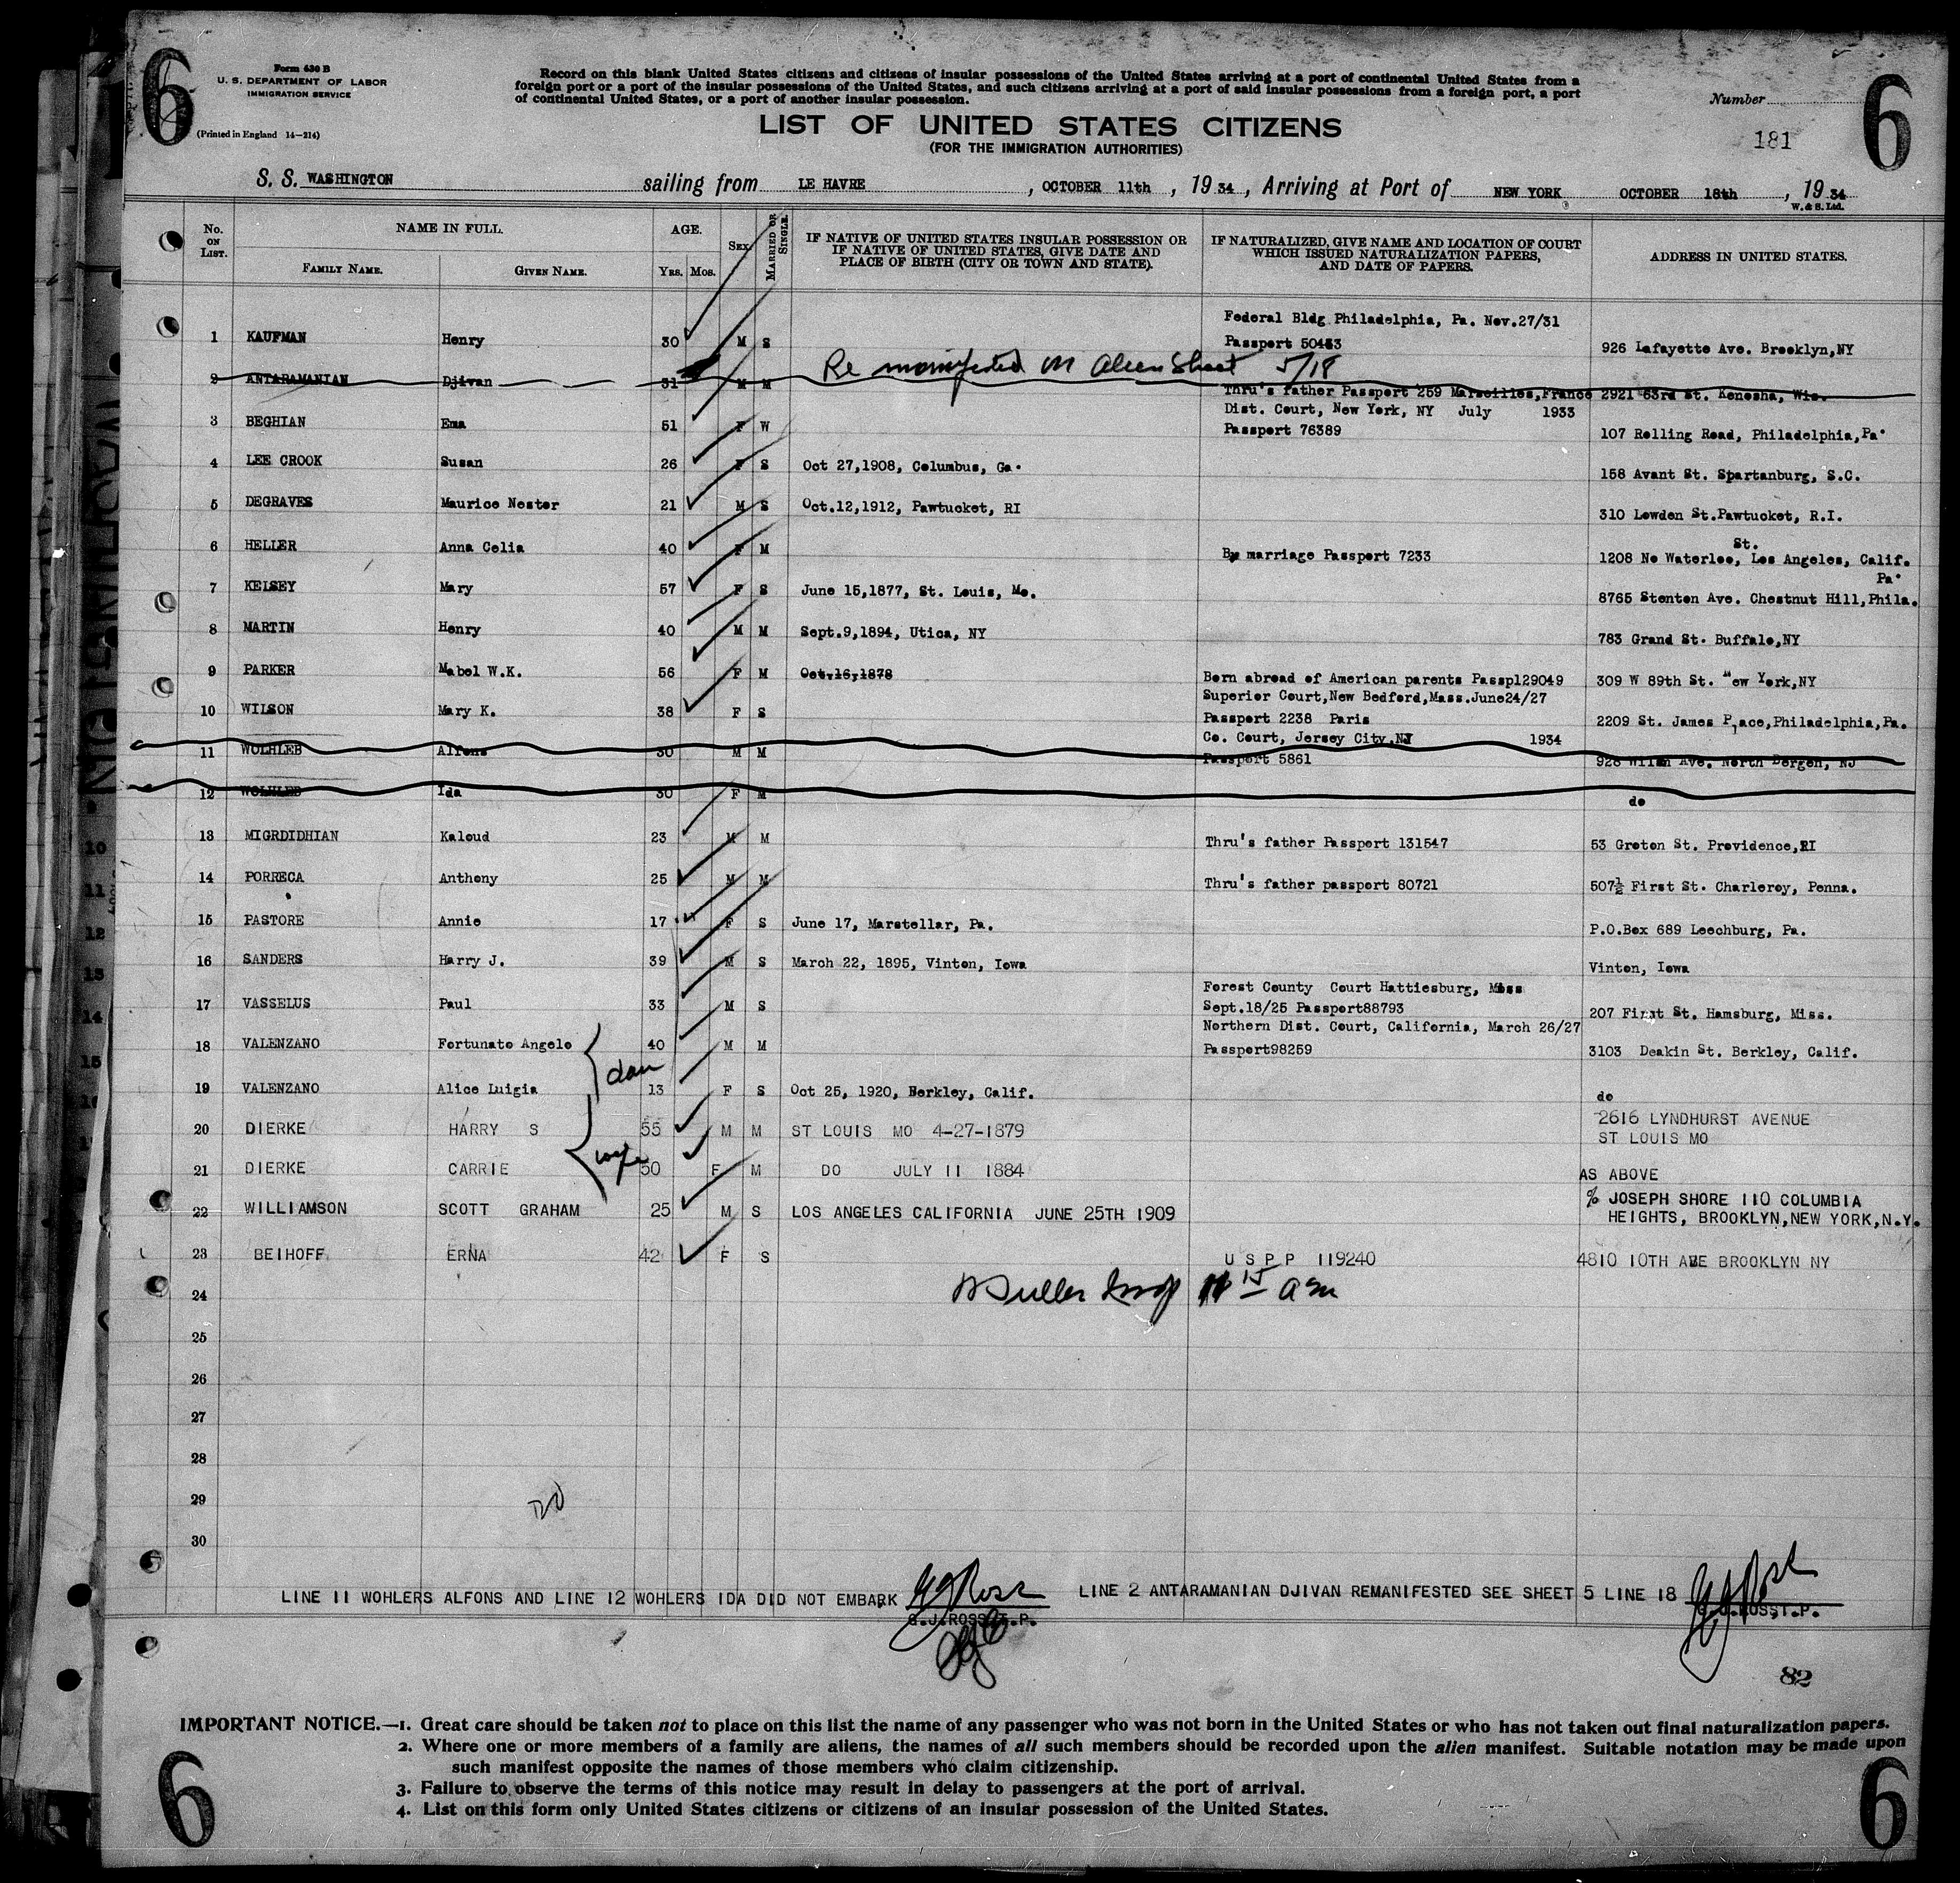 6
Form 630 B
U. S. DEPARTMENT OF LABOR
IMMIGRATION SERVICE
(Printed in England 14—214)
Record on this blank United States citizens and citizens of insular possessions of the United States arriving at a port of continental United States from a
foreign port or a port of the insular possessions of the United States, and such citizens arriving at a port of said insular possessions from a foreign port, a port
of continental United States, or a port of another insular possession.
LIST OF UNITED STATES CITIZENS
(FOR THE IMMIGRATION AUTHORITIES)
Number
181
6
S. S. WASHINGTON sailing from LE HAVRE, OCTOBER 11th, 1934, Arriving at Port of NEW YORK OCTOBER 18th, 1934
W. & S. Ltd.
No. ON LIST. NAME IN FULL. FAMILY NAME. GIVEN NAME. AGE. YRS. MOS. SEX. MARRIED OR SINGLE. IF NATIVE OF UNITED STATES INSULAR POSSESSION OR IF NATIVE OF UNITED STATES, GIVE DATE AND PLACE OF BIRTH (CITY OR TOWN AND STATE). IF NATURALIZED, GIVE NAME AND LOCATION OF COURT WHICH ISSUED NATURALIZATION PAPERS, AND DATE OF PAPERS. ADDRESS IN UNITED STATES.
Federal Bldg Philadelphia, Pa. Nov.27/31
1 KAUFMAN Henry 30 M S Passport 50453 926 Lafayette Ave. Brooklyn,NY
Re manifested on Alien Sheet 5/18
2 ANTARAMANIAN Djivan 31 M M Thru's father Passport 259 Marseilles,France 2921 63rd St. Kenosha, Wis.
Dist. Court, New York, NY July 1933
3 BEGHIAN Ema 51 F W Passport 76389 107 Rolling Road, Philadelphia,Pa.
4 LEE CROOK Susan 26 F S Oct 27,1908, Columbus, Ga. 158 Avant St. Spartanburg, S.C.
5 DEGRAVES Maurice Nestor 21 M S Oct.12,1912, Pawtucket, RI 310 Lowden St.Pawtucket, R.I.
6 HELLER Anna Celia 40 F M By marriage Passport 7233 1208 No Waterloo, St. Los Angeles, Calif.
7 KELSEY Mary 57 F S June 15,1877, St. Louis, Mo. 8765 Stenton Ave. Chestnut Hill,Phila. Pa.
8 MARTIN Henry 40 M M Sept.9,1894, Utica, NY 783 Grand St. Buffalo,NY
9 PARKER Mabel W.K. 56 F M Oct.16,1878 Born abroad of American parents Passp129049 309 W 89th St. New York,NY
Superior Court,New Bedford,Mass.June24/27
10 WILSON Mary K. 38 F S Passport 2238 Paris 2209 St. James Place,Philadelphia,Pa.
Co. Court, Jersey City,NJ 1934
11 WOLHLEB Alfons 30 M M Passport 5861 928 Ave. North Bergen, NJ
12 WOLHLEB Ida 30 F M do
13 MIGRDIDHIAN Kaloud 23 M M Thru's father Passport 131547 53 Groton St. Providence,RI
14 PORRECA Anthony 25 M M Thru's father passport 80721 507½ First St. Charleroy, Penna.
15 PASTORE Annie 17 F S June 17, Marstellar, Pa. P.O.Box 689 Leechburg, Pa.
16 SANDERS Harry J. 39 M S March 22, 1895, Vinton, Iowa Vinton, Iowa
Forest County Court Hattiesburg, Miss
17 VASSELUS Paul 33 M S Sept.18/25 Passport88793 207 First St. Hamsburg, Miss.
Northern Dist. Court, California, March 26/27
18 VALENZANO Fortunato Angelo 40 M M Passport98259 3103 Deakin St. Berkley, Calif.
dau
19 VALENZANO Alice Luigia 13 F S Oct 25, 1920, Berkley, Calif. do
20 DIERKE HARRY S 55 M M ST LOUIS MO 4-27-1879 2616 LYNDHURST AVENUE
ST LOUIS MO
wife
21 DIERKE CARRIE 50 F M DO JULY 11 1884 AS ABOVE
22 WILLIAMSON SCOTT GRAHAM 25 M S LOS ANGELES CALIFORNIA JUNE 25TH 1909 % JOSEPH SHORE 110 COLUMBIA
HEIGHTS, BROOKLYN,NEW YORK,N.Y.
23 BEIHOFF ERNA 42 F S U S P P 119240 4810 10TH AVE BROOKLYN NY
24
25
26
27
28
29
30
LINE 11 WOHLERS ALFONS AND LINE 12 WOHLERS IDA DID NOT EMBARK G.J.ROSS T.P. LINE 2 ANTARAMANIAN DJIVAN REMANIFESTED SEE SHEET 5 LINE 18 G.J.ROSS T.P.
82
IMPORTANT NOTICE.—1. Great care should be taken not to place on this list the name of any passenger who was not born in the United States or who has not taken out final naturalization papers.
2. Where one or more members of a family are aliens, the names of all such members should be recorded upon the alien manifest. Suitable notation may be made upon
such manifest opposite the names of those members who claim citizenship.
3. Failure to observe the terms of this notice may result in delay to passengers at the port of arrival.
4. List on this form only United States citizens or citizens of an insular possession of the United States.
6
6